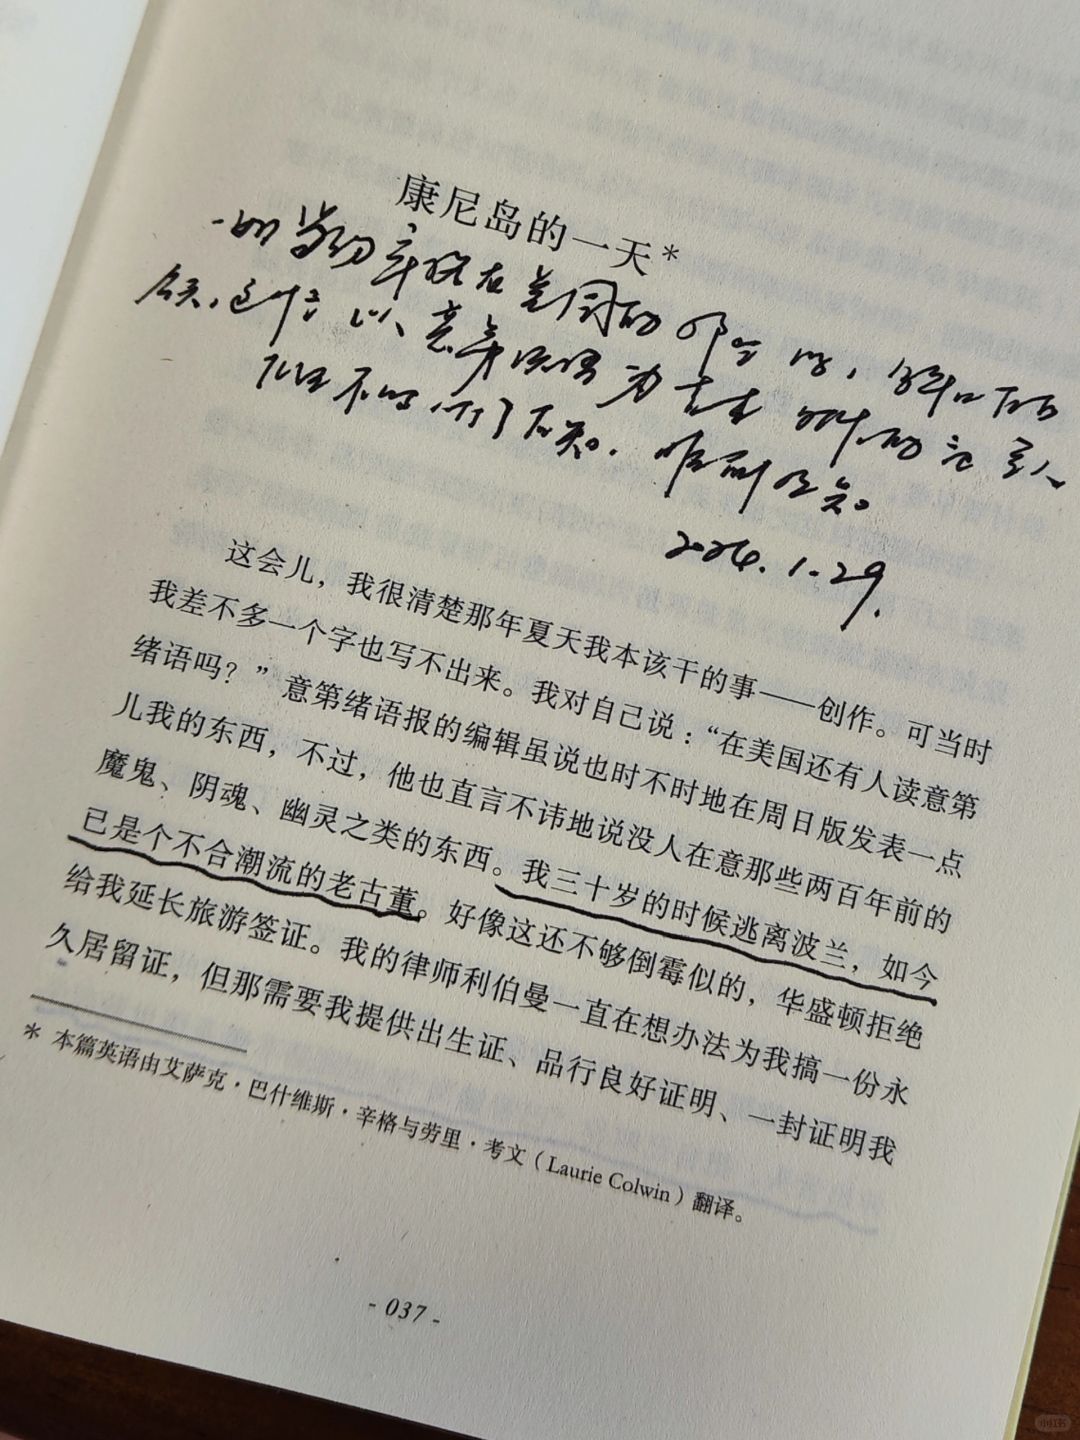 康尼岛的一天*
一如当初辛格在美国的
今天，这位以意第绪语为
2024.1.29.
这会儿，我很清楚那年夏天我本该干的事——创作。可当时
我差不多一个字也写不出来。我对自己说：“在美国还有人读意第
绪语吗？”意第绪语报的编辑虽说也时不时地在周日版发表一点
儿我的东西，不过，他也直言不讳地说没人在意那些两百年前的
魔鬼、阴魂、幽灵之类的东西。我三十岁的时候逃离波兰，如今
已是个不合潮流的老古董。好像这还不够倒霉似的，华盛顿拒绝
给我延长旅游签证。我的律师利伯曼一直在想办法为我搞一份永
久居留证，但那需要我提供出生证、品行良好证明、一封证明我
* 本篇英语由艾萨克·巴什维斯·辛格与劳里·考文（Laurie Colwin）翻译。
- 037 -
小红书